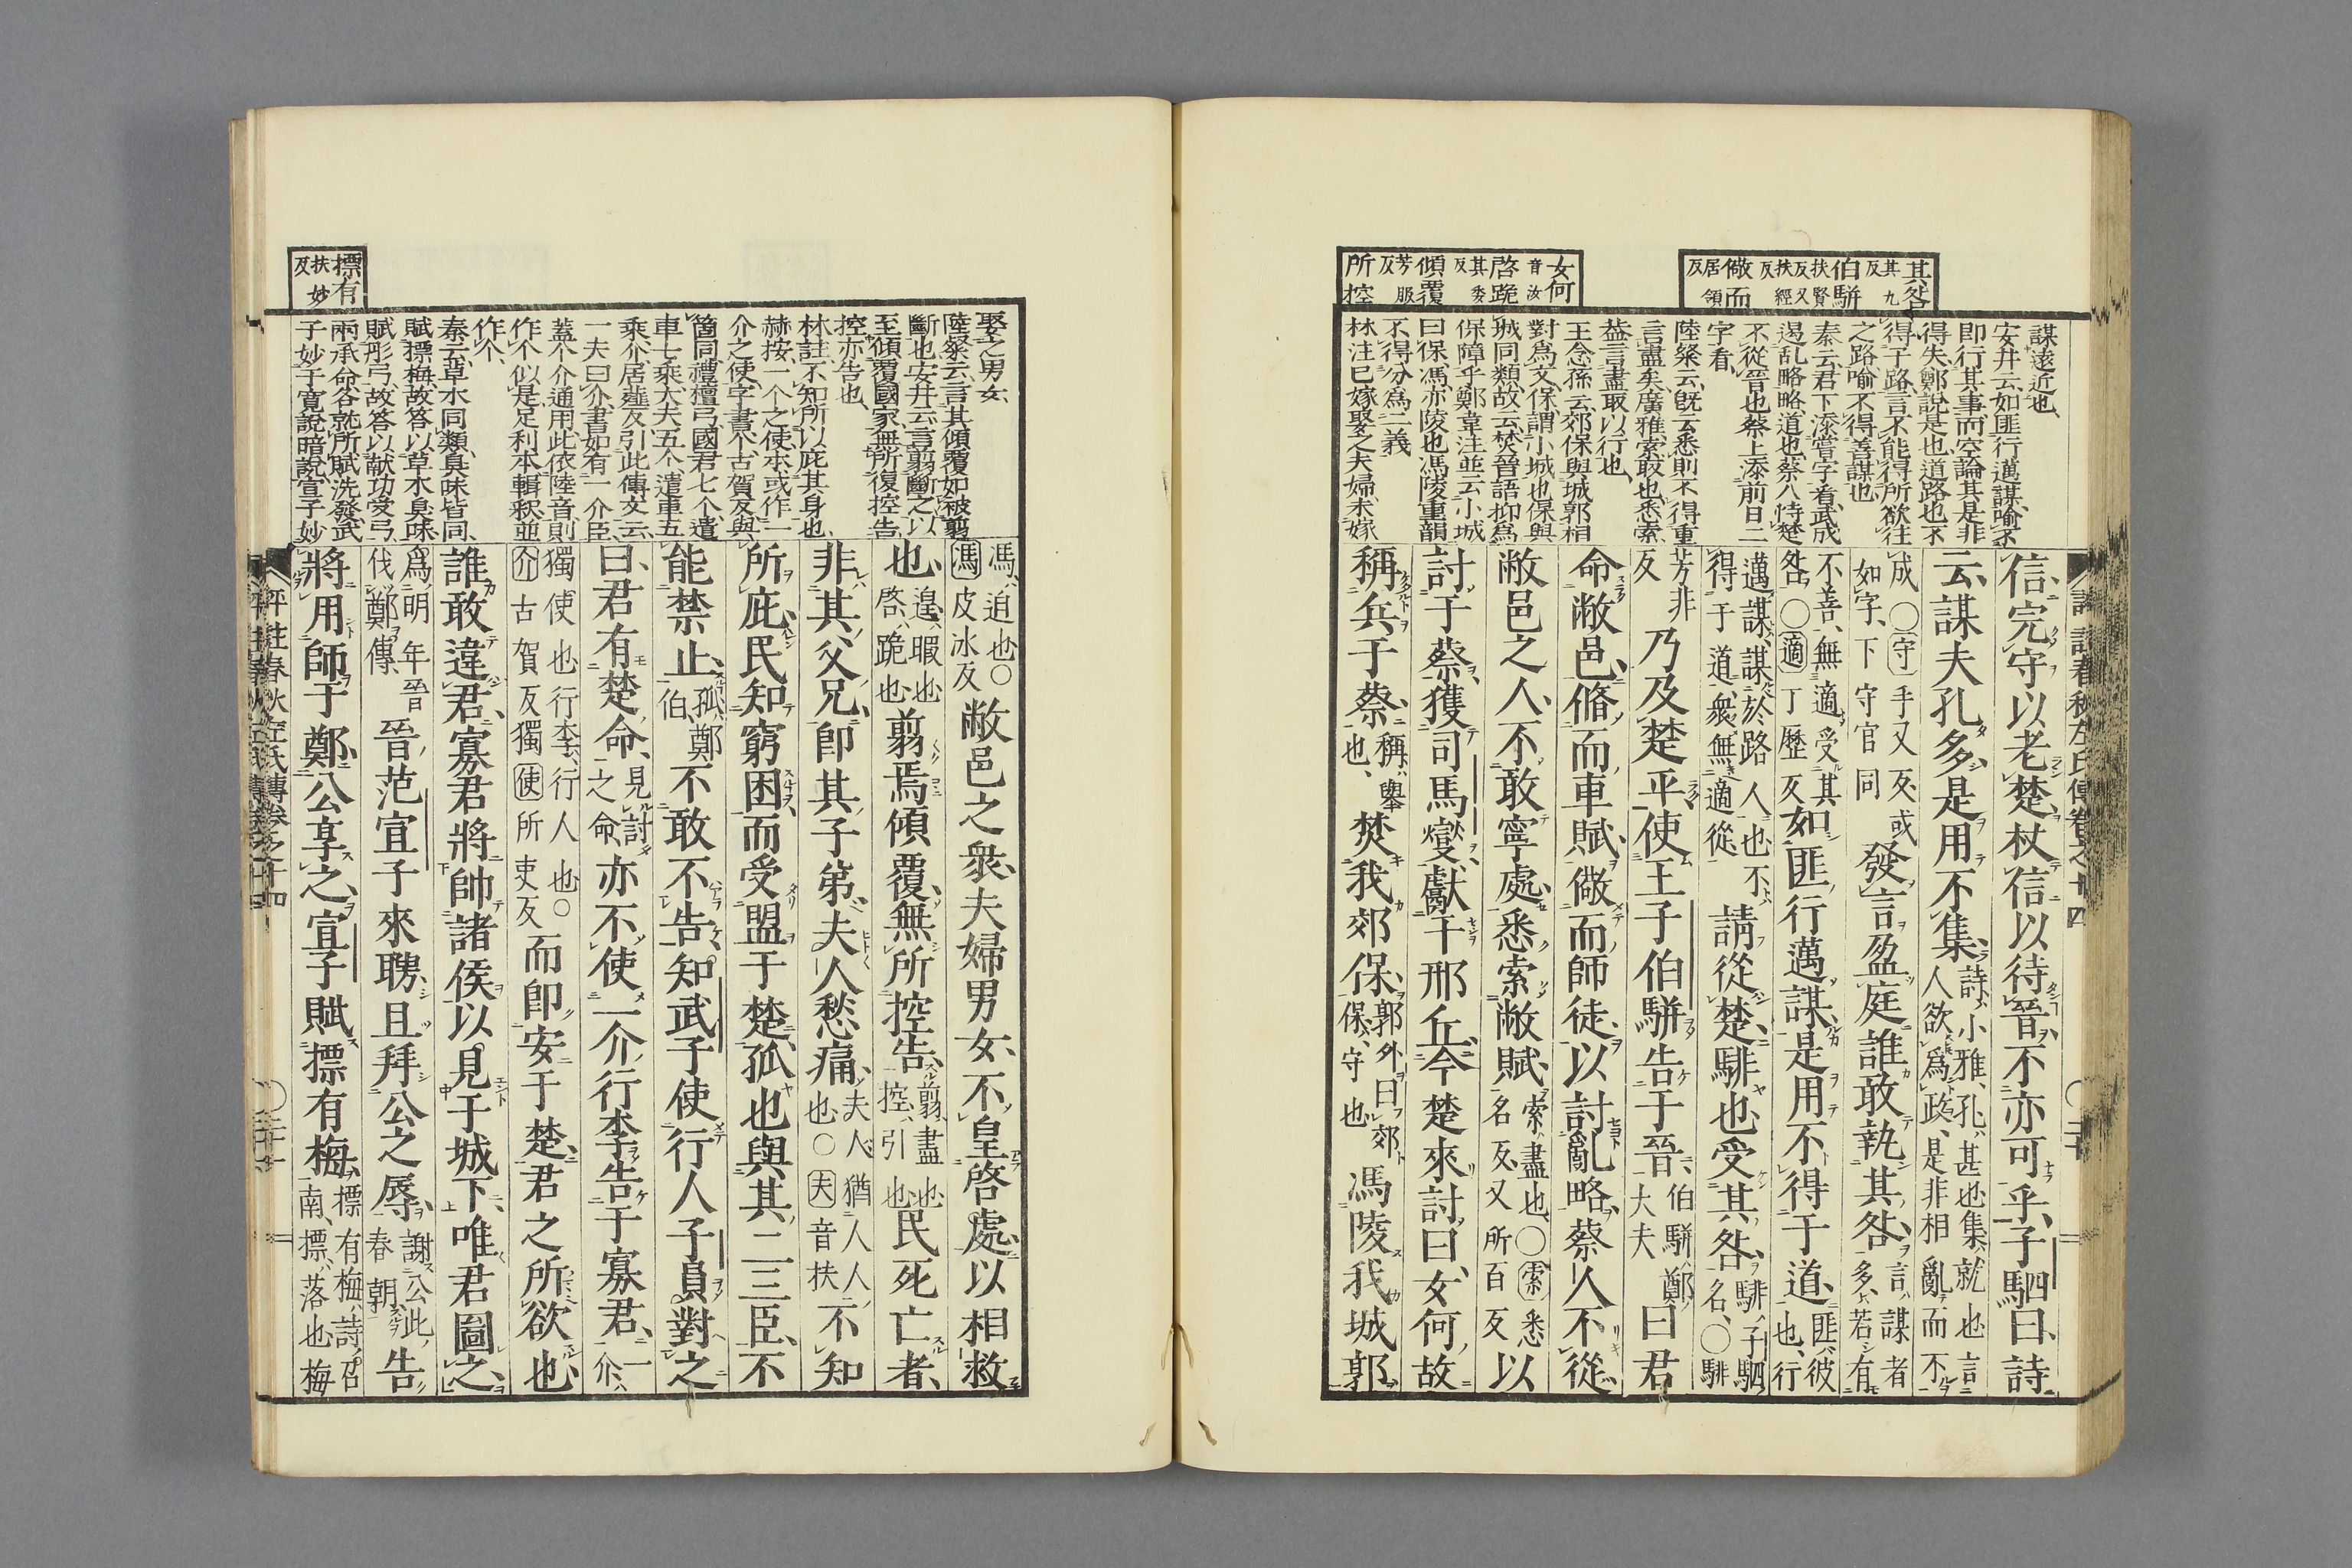 其咎
其九反
伯駢
扶賢反又扶經反
儆而
居領反
女何
音汝
啓跪
其委反
傾覆
芳服反
所控
謀遠近也
安井云如匪行邁謀喻不
即行其事而空論其是非
得失鄭說是也道路也不
得于路言不能得所欲往
之路喻不得善謀也
秦云君下漆嘗字看武成
遏乱略略道也蔡八侍楚
不從晉也蔡上漆前日二
字看
陸粲云既云悉則不得重
言盡矣廣雅索敢也悉索
益言盡取以行也
王念孫云郊保與城郭相
對爲文保謂小城也保與
城同類故云焚晉語抑爲
保障乎鄭韋注並云小城
曰保馮亦陵也馮陵重韻
不得分爲二義
林注已嫁娶之夫婦未嫁
信完守以老楚杖信以待晉不亦可乎子駟曰詩
云謀夫孔多是用不集詩小雅孔甚也集就也言人欲爲政是非相亂而不
成〇守手又反或如字下守官同發言盈庭誰敢執其咎言謀者多若有
不善無適受其咎〇適丁歷反如匪行邁謀是用不得于道匪彼也行
邁謀謀於路人也不得于道衆無適從請從楚騑也受其咎騑子駟名〇騑
芳非反乃及楚平使王子伯駢告于晉伯駢鄭大夫曰君
命敝邑脩而車賦儆而師徒以討亂略蔡人不從
敝邑之人不敢寧處悉索敝賦索盡也〇索悉名反又所百反以
討于蔡獲司馬燮獻于邢丘今楚來討曰女何故
稱兵于蔡稱舉也焚我郊保郭外曰郊保守也馮陵我城郭
摽有
扶妙反
娶之男女
陸粲云言其傾覆如被翦
斷也安井云言翦斷之以
至傾覆國家無所復控告
控亦告也
林註不知所以庇其身也
赫按一个之使本或作一
介之使字書个古賀反與
箇同禮檀弓國君七个遣
車七乘大夫五个遣車五
乘介居薤反引此傳文云
一夫曰介書如有一介臣
蓋个介通用此依陸音則
作个似是足利本輯釈並
作个
秦云草木同類臭味皆同
賦摽梅故答以草木臭味
賦彤弓故答以献功受弓
兩承命各就所賦洗發武
子妙于寛說暗說宣子妙
馮迫也〇馮皮冰反敝邑之衆夫婦男女不皇啓處以相救
也遑暇也啓跪也翦焉傾覆無所控告翦盡也控引也民死亡者
非其父兄即其子弟夫人愁痛夫人猶人人也〇夫音扶不知
所庇民知窮困而受盟于楚孤也與其二三臣不
能禁止孤鄭伯不敢不告知武子使行人子員對之
曰君有楚命見討之命亦不使一介行李告于寡君一介
獨使也行李行人也〇介古賀反獨使所吏反而即安于楚君之所欲也
誰敢違君寡君將帥諸侯以見于城下唯君圖之
爲明年晉伐鄭傳晉范宣子來聘且拜公之辱謝公此春朝告
將用師于鄭公享之宣子賦摽有梅摽有梅詩召南摽落也梅